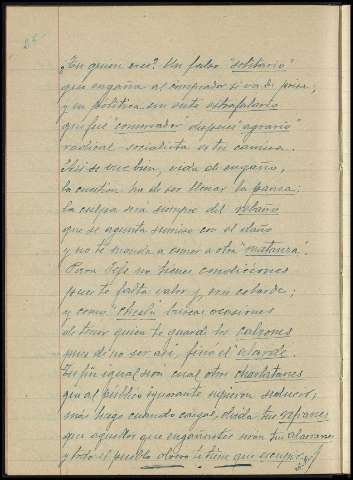 ¿Tu quien eres? Un falso "solitario"
que engaña al comprador si va de prisa;
y en politica un ente estrafalario
que fué "conservador" despues "agrario"
radical-socialista es tu camisa.
Asi se vive bien, vida de engaño,
la cuestión ha de ser llenar la panza;
la culpa será siempre del rebaño
que se aguanta sumiso con el daño
y no te manda a comer a otra "pastanza".
Para Jefe no tienes condiciones
pues te falta valor y, eres cobarde;
y como buscas ocasiones
de tener quien te guarde los calzones
pues di no ser así, fino el alarde.
En fin igual son cual otros charlatanes
que al público ignorante quieren seducir;
más luego cuando caigas, olvida tus refranes
que aquellos que engañastes seran tus alacranes
y todo el pueblo obrero te tiene que escupir.